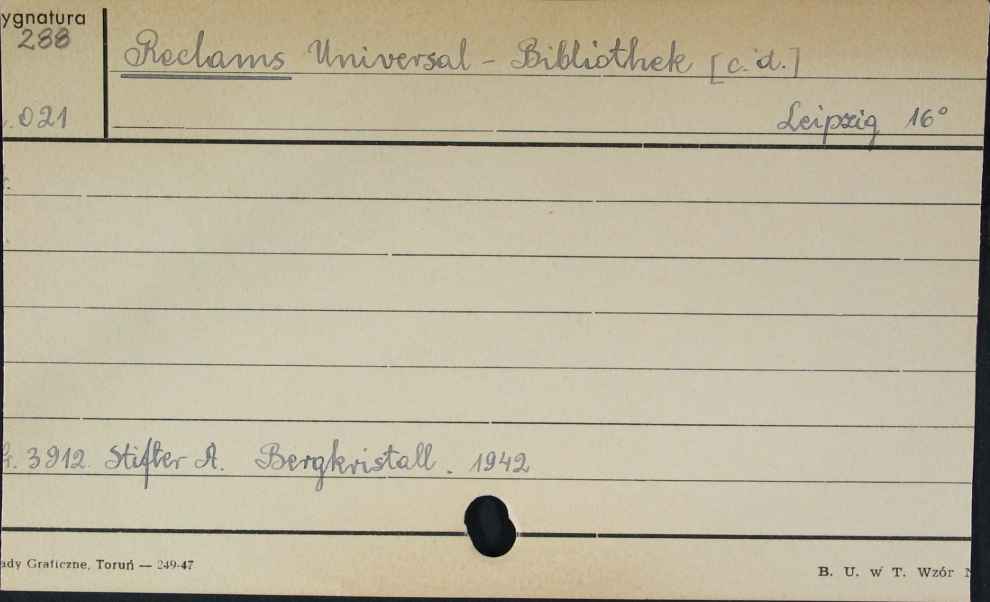 ygnatura
288
Reclams Universal - Bibliothek [c. d.]
021
Leipzig 16°
3912. Stifter A. Bergkristall. 1942
ady Graficzne, Toruń — 249-47
B. U. w T. Wzór